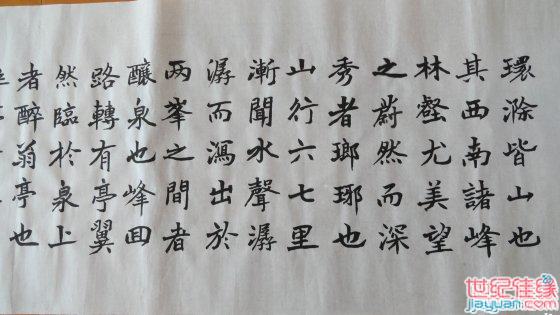 環滁皆山也
其西南諸峰
林壑尤美望
之蔚然而深
秀者瑯琊也
山行六七里
漸聞水聲潺
潺而瀉出於
两峯之間者
釀泉也峰囬
路轉有亭翼
然臨於泉上
者醉翁亭也
世纪佳缘
jiayuan.com